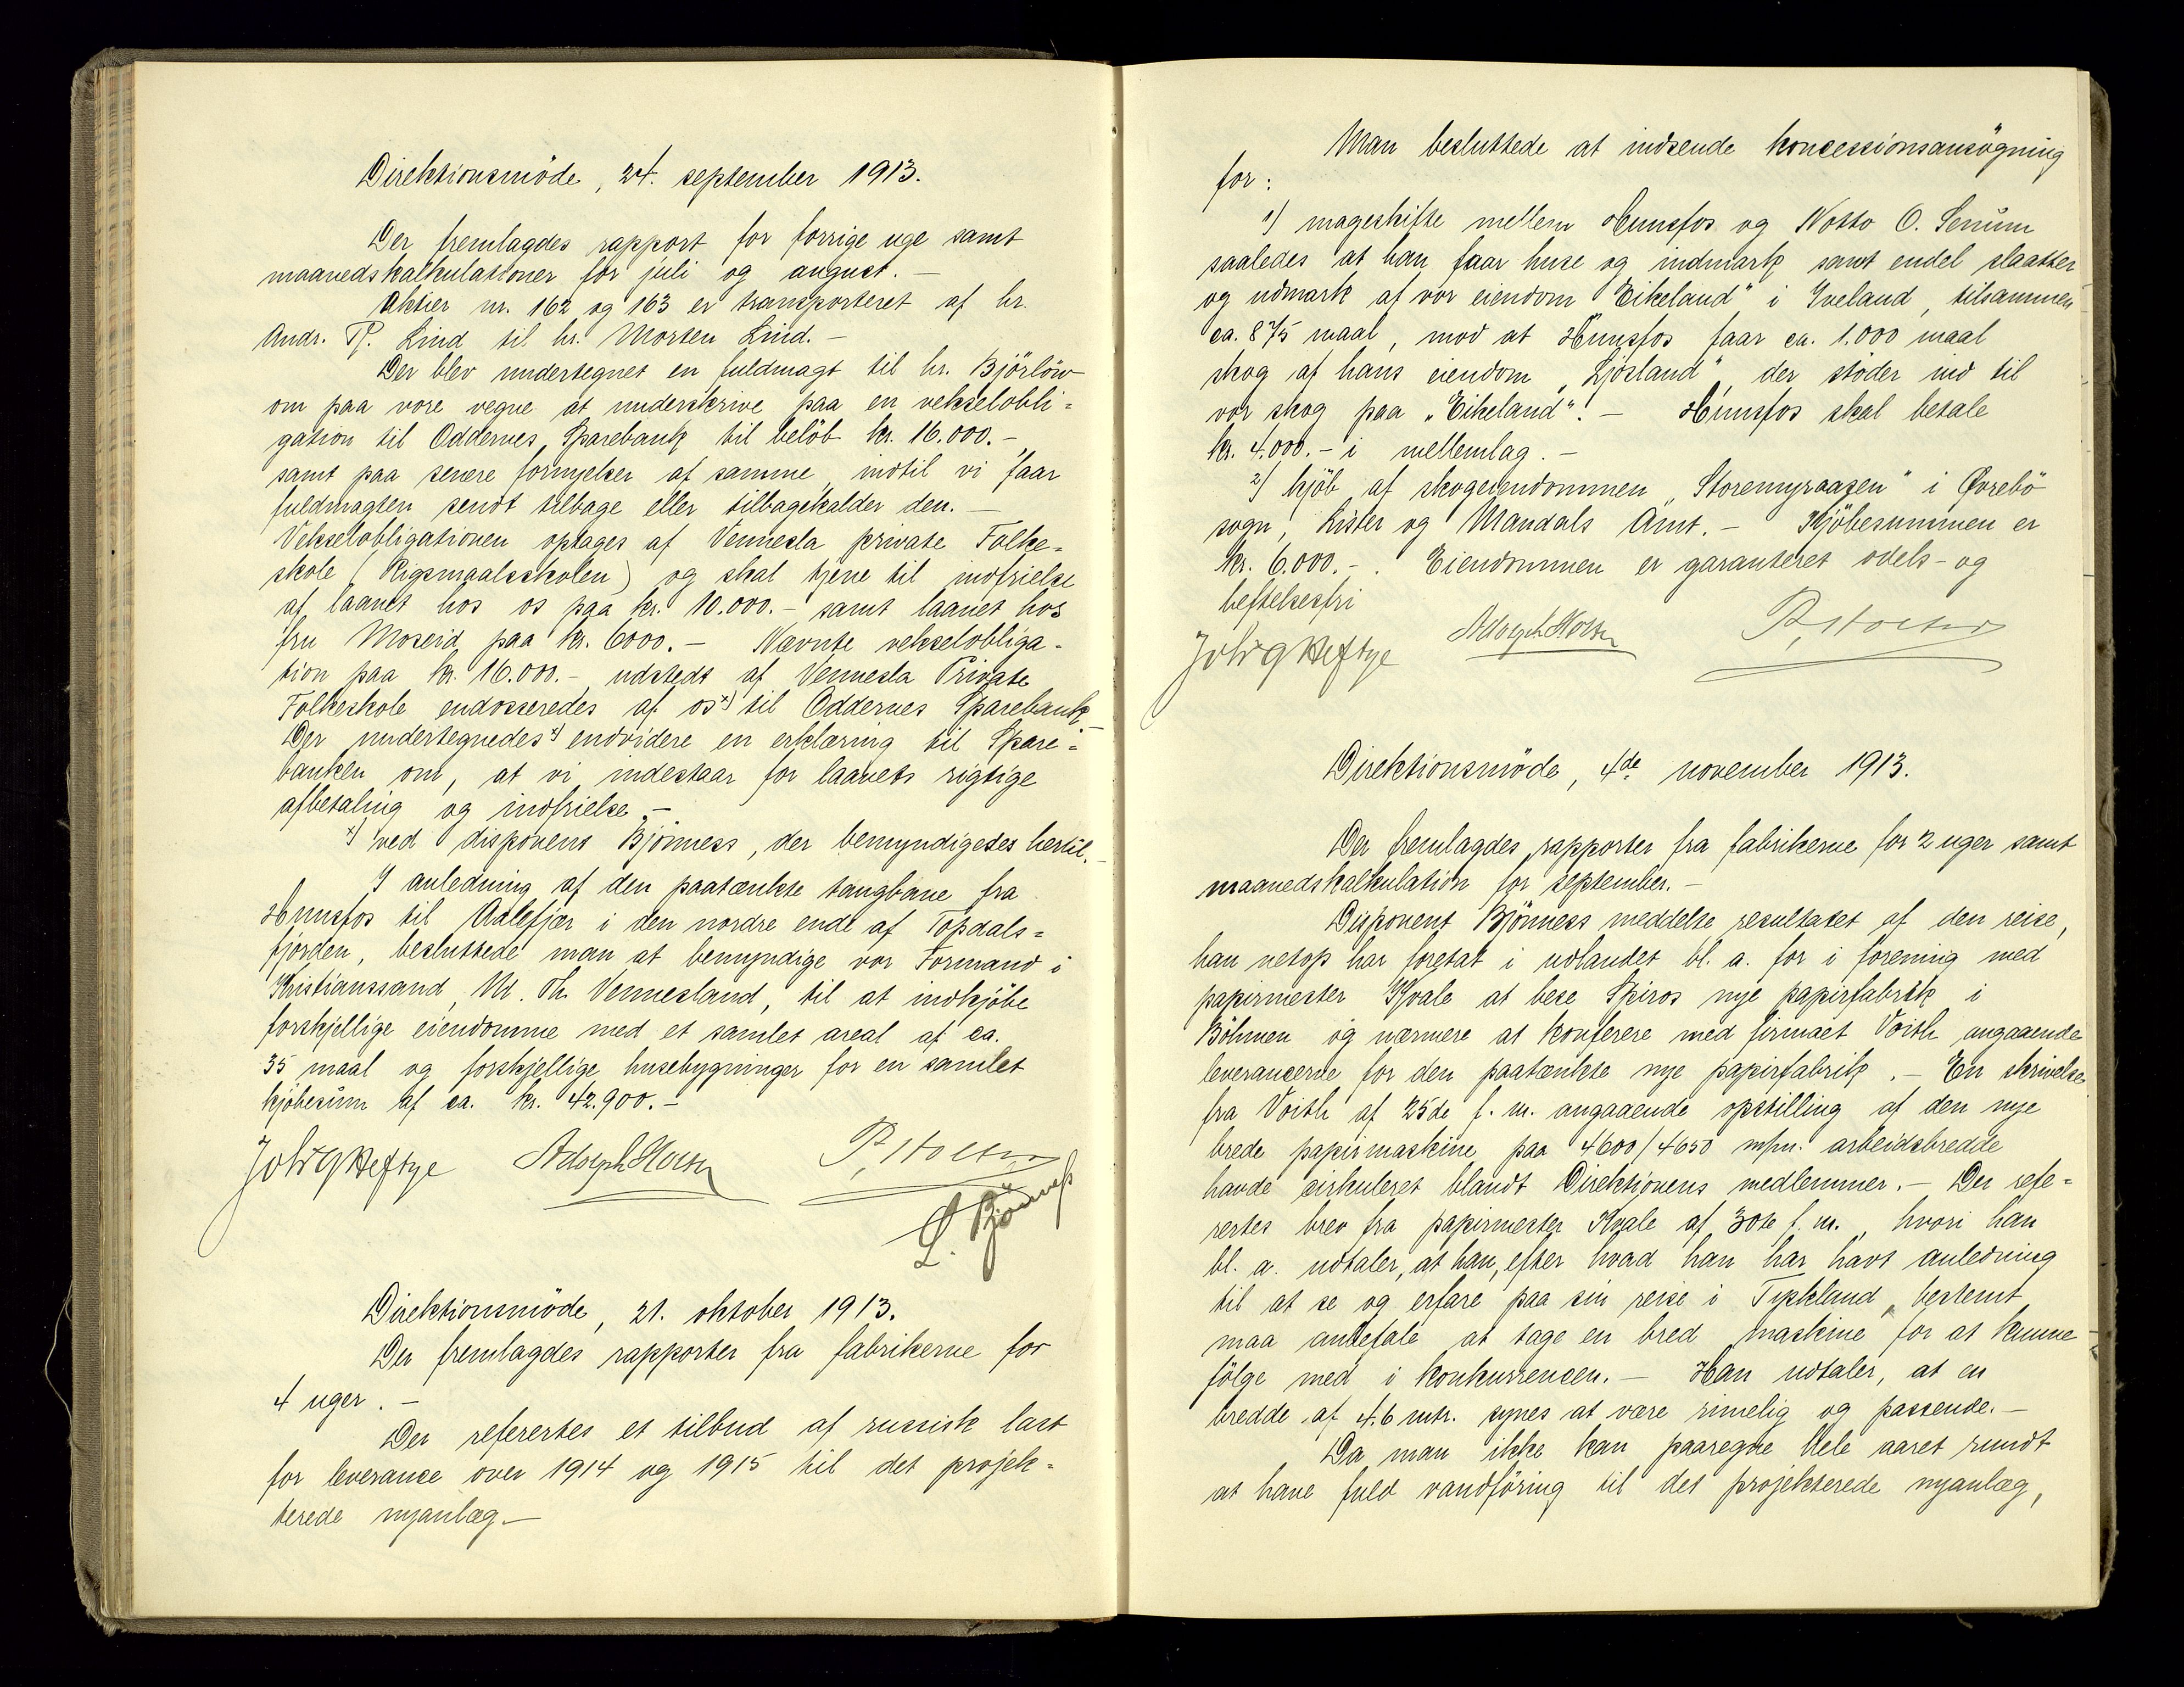 Direktionsmöde, 24. september 1913.
Der fremlagdes rapport for forrige uge samt
maanedskalkulationer for juli og august. –
Aktier nr. 162 og 163 er transporteret af hr.
Andr. P. Lind til hr. Morten Lind. –
Der blev undertegnet en fuldmagt til hr. Björlöw
om paa vore vegne at underskrive paa en vekselobli=
gation til Oddernes Sparebank til belöb kr. 16.000.–,
samt paa senere fornyelser af samme, indtil vi faar
fuldmagten sendt tilbage eller tilbagekalder den. –
Vekselobligationen optages af Vennesla private Folke=
skole (Rigsmaalsskolen) og skal tjene til indfrielse
af laanet hos os paa kr. 10.000.– samt laanet hos
fru Moseid paa kr. 6000.– Nævnte vekselobliga-
tion paa kr. 16.000.– udstedt af Vennesla Private
Folkeskole endosseredes af os x) til Oddernes Sparebank. –
Der undertegnedes x) endvidere en erklæring til Spare=
banken om, at vi indestaar for laanets rigtige
afbetaling og indfrielse. –
x) ved disponent Bjönness, der bemyndigedes hertil. –
I anledning af den paatænkte taugbane fra
Hunsfos til Aalefjær i den nordre ende af Topdals=
fjorden, besluttede man at bemyndige vor Formand i
Kristianssand, Mr. Th. Vennesland, til at indkjöbe
forskjellige eiendomme med et samlet areal af ca.
35 maal og forskjellige husebygninger for en samlet
kjöbesum af ca. kr. 42.900.–
Joh GHeftye Adolph Holth P. Holth
L. Bjönness
Direktionsmöde, 21. oktober 1913.
Der fremlagdes rapporter fra fabrikerne for
4 uger. –
Der referertes et tilbud af russisk last
for leverance over 1914 og 1915 til det projek=
terede nyanlæg –
Man besluttede at indsende koncessionsansögning
for:
1) mageskifte mellem Hunsfos og Notto O. Senum
saaledes at han faar huse og indmark samt endel slaatter
og udmark af vor eiendom "Eikeland" i Iveland, tilsammen
ca. 875 maal, mod at Hunsfos faar ca. 1.000 maal
skog af hans eiendom „Ljosland", der stöder ind til
vor skog paa „Eikeland". – Hunsfos skal betale
kr. 4.000.– i mellemlag. –
2) kjöb af skogeiendommen „Storemyraasen" i Øvrebö
sogn, Lister og Mandals Amt. – Kjöbesummen er
kr. 6.000.–. Eiendommen er garanteret odels- og
heftelsesfri
Joh GHeftye Adolph Holth P. Holth
Direktionsmöde, 4de november 1913.
Der fremlagdes rapporter fra fabrikerne for 2 uger samt
maanedskalkulation for september. –
Disponent Bjönness meddelte resultatet af den reise,
han netop har foretat i udlandet bl. a. for i forening med
papirmester Kvale at bese Spiros nye papirfabrik i
Böhmen og nærmere at konferere med firmaet Voith angaaende
leverancerne for den paatænkte nye papirfabrik. – En skrivelse
fra Voith af 25de f. m. angaaende opstilling af den nye
brede papirmaskine paa 4600/4650 m/m. arbeidsbredde
havde cirkuleret blandt Direktionens medlemmer. – Der refe=
rertes brev fra papirmester Kvale af 30te f. m., hvori han
bl. a. udtaler, at han, efter hvad han har havt anledning
til at se og erfare paa sin reise i Tyskland, bestemt
maa anbefale at tage en bred maskine for at kunne
fölge med i konkurrencen. – Han udtaler, at en
bredde af 4.6 mtr. synes at være rimelig og passende. –
Da man ikke kan paaregne hele aaret rundt
at have fuld vandföring til det projekterede nyanlæg,